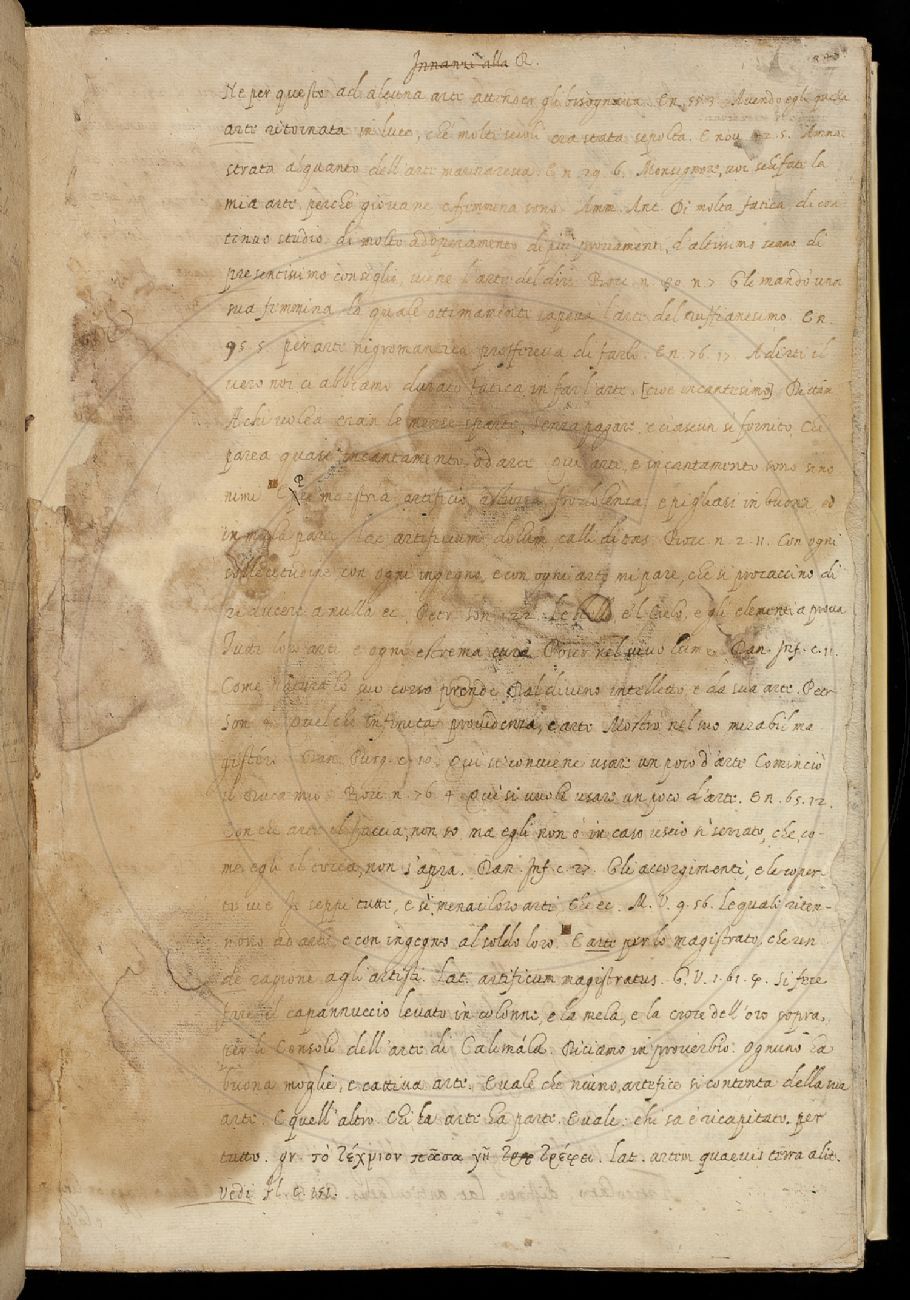 Innanzi alla R.
Ne per questo ad alcuna arte attender gli bisognava. E n. 55. 3. Avendo egli quella
arte ritornata in luce, che molti secoli era stata sepolta. E nov. 42. 5. Amma-
strata alquanto dell'arte marinaresca. E n. 29. 6. Monsignore, voi schifate la
mia arte, perchè giovane e femmina sono. Amm. Ant. Di molta fatica, di con-
tinuo studio, di molto adoperamento, di più provamenti, d'altissimo senno, di
presentissimo consiglio, viene l'arte del dire. Bocc. n. 80. n. 7. Gle mandò una
sua femmina, la quale ottimamente sapeva l'arte del ruffianesimo. E n.
95. 5. per arte nigromantica profereva di farlo. E n. 76. 17. A dirti il
vero noi ci abbiamo durato fatica in far l'arte. [cioè incantesimo] Dittam.
A chi volea eran le mense sparte, Senza pagare, e ciascun sì fornito, Che
parea quasi incantamento, od arte. Qui arte, e incantamento sono sino-
nimi. P Per maestria artificio, astuzia, frodolenza, e pigliasi in buona, ed
in mala parte. Lat. artificium, dolum, calliditas. Bocc. n. 2. 11. Con ogni
sollecitudine, con ogni ingegno, e con ogni arte mi pare, che si procaccino di
riducere a nullo ec. Petr. son. 122. Le stelle e 'l Cielo, e gli elementi a prova
Tutte loro arti e ogni estrema cura Poser nel vivo lume. Dan. Inf. c. 11.
Come natura lo suo corso prende Dal divino intelletto e da sua arte. Petr.
son. 4. Quel che infinita providenza, e arte Mostrò nel suo mirabil ma-
gistero. Dan. Purg. c. 10. Qui si conviene usare un poco d'arte Cominciò
il Duca mio. Bocc. n. 76. 4. Qui si vuole usare un poco d'arte. E n. 65. 12.
Con che arte il faccia, non so ma egli non è in casa uscio sì serrato, che, co-
me egli il tocca, non s'apra. Dan. Inf. c. 27. Gli accorgimenti, e le coper-
te vie Io seppi tutte, e sì menai loro arte Che ec. M. V. 9. 56. Le quali riten-
nono ad arte, e con ingegno al soldo loro. E arte per lo magistrato, che ren-
de ragione agli artisti. Lat. artificum magistratus. G. V. 1. 61. 4. Si fece
fare il capannuccio levato in colonne, e la mela, e la croce dell'oro sopra,
per li Consoli dell'arte di Calimàla. Diciamo in proverbio. Ognuno ha
buona moglie, e cattiva arte. E vale che niuno artefice si contenta della sua
arte. E quell'altro. Chi ha arte ha parte. E vale: chi sa è ricapitato per
tutto. gr. τὸ τέχνιον πᾶσα γῆ τρέφει. Lat. artem quaevis terra alit.
Vedi Fl. 151.